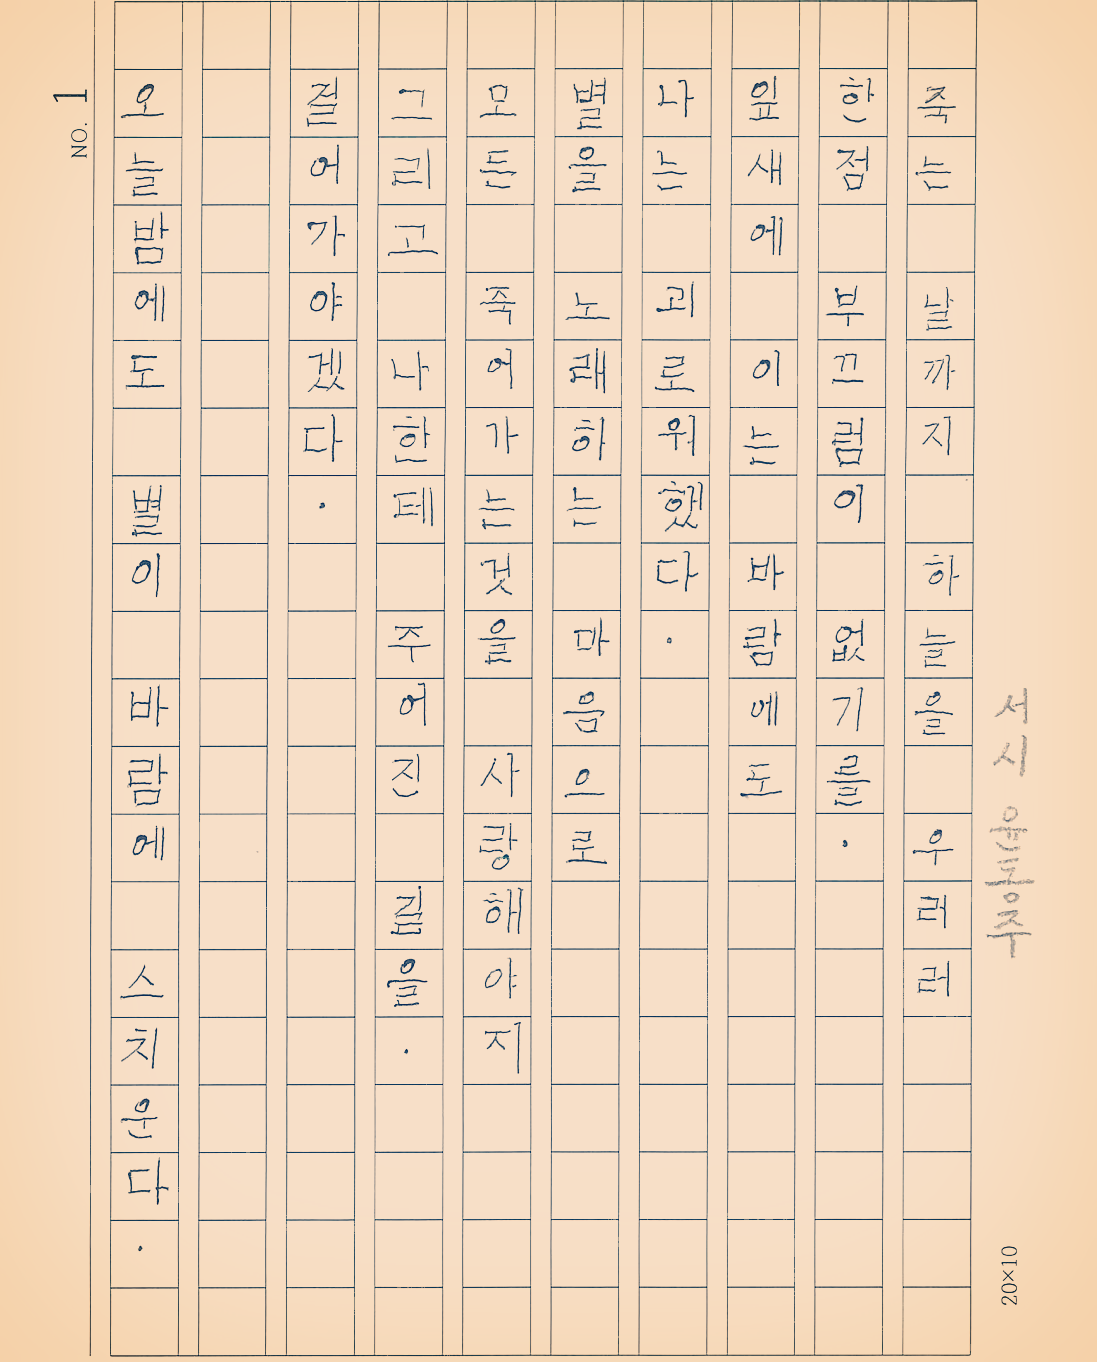 서시 윤동주
죽는 날까지 하늘을 우러러
한점 부끄럼이 없기를.
잎새에 이는 바람에도
나는 괴로워했다.
별을 노래하는 마음으로
모든 죽어가는것을 사랑해야지
그리고 나한테 주어진 길을.
걸어가야겠다.
오늘밤에도 별이 바람에 스치운다.
NO. 1
20×10